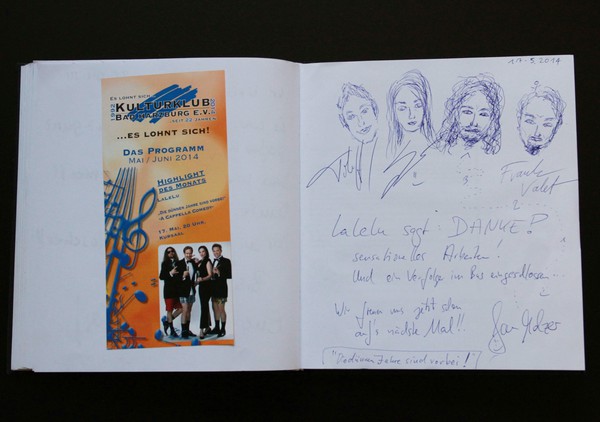 ES LOHNT SICH
KULTURKLUB
BAD HARZBURG E.V.
SEIT 22 JAHREN
...ES LOHNT SICH!
DAS PROGRAMM
MAI / JUNI 2014
HIGHLIGHT
DES MONATS
LALELU
„DIE DÜNNEN JAHRE SIND VORBEI"
-A CAPPELLA COMEDY-
17. MAI, 20 UHR,
KURSAAL
17.5.2014
Frank
Valet
Lalelu sagt: DANKE!
sensationelles Arbeiten!
Und ein Verfolger im Bus
Wir freuen uns jetzt schon
auf's nächste Mal!!
"Die dünnen Jahre sind vorbei!"